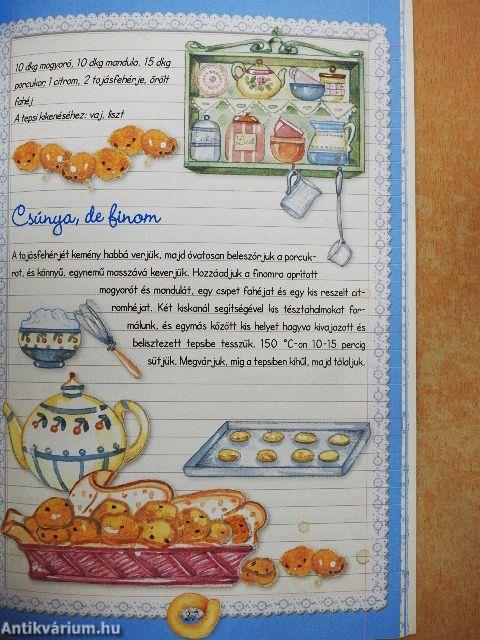 10 dkg mogyoró, 10 dkg mandula, 15 dkg
porcukor, 1 citrom, 2 tojásfehérje, őrölt
fahéj
A tepsi kikenéséhez: vaj, liszt
Csúnya, de finom
A tojásfehérjét kemény habbá verjük, majd óvatosan beleszórjuk a porcuk-
rot, és könnyű, egynemű masszává keverjük. Hozzáadjuk a finomra aprított
mogyorót és mandulát, egy csipet fahéjat és egy kis reszelt cit-
romhéjat. Két kiskanál segítségével kis tésztahalmokat for-
málunk, és egymás között kis helyet hagyva kivajazott és
belisztezett tepsibe tesszük. 150 °C-on 10-15 percig
sütjük. Megvárjuk, míg a tepsiben kihűl, majd tálaljuk.
27
Antikvárium.hu